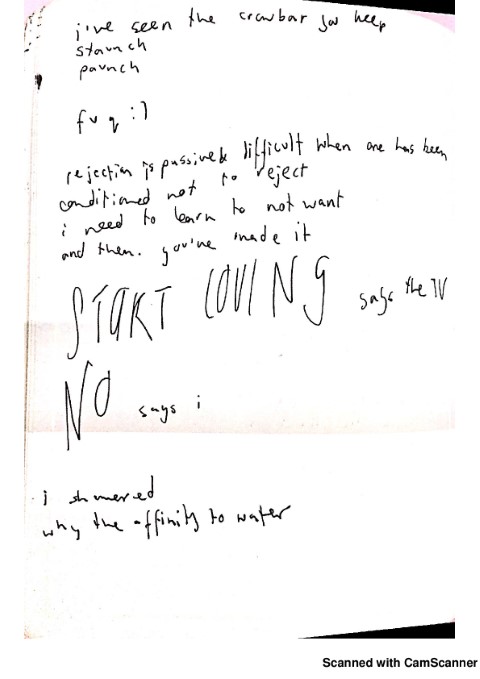 i've seen the crowbar you keep
staunch
paunch
f u q :)
rejection is difficult when one has been
conditioned not to reject
i need to learn to not want
and then. you've made it
START LOVING says the TV
NO says i
i showered
why the affinity to water
Scanned with CamScanner